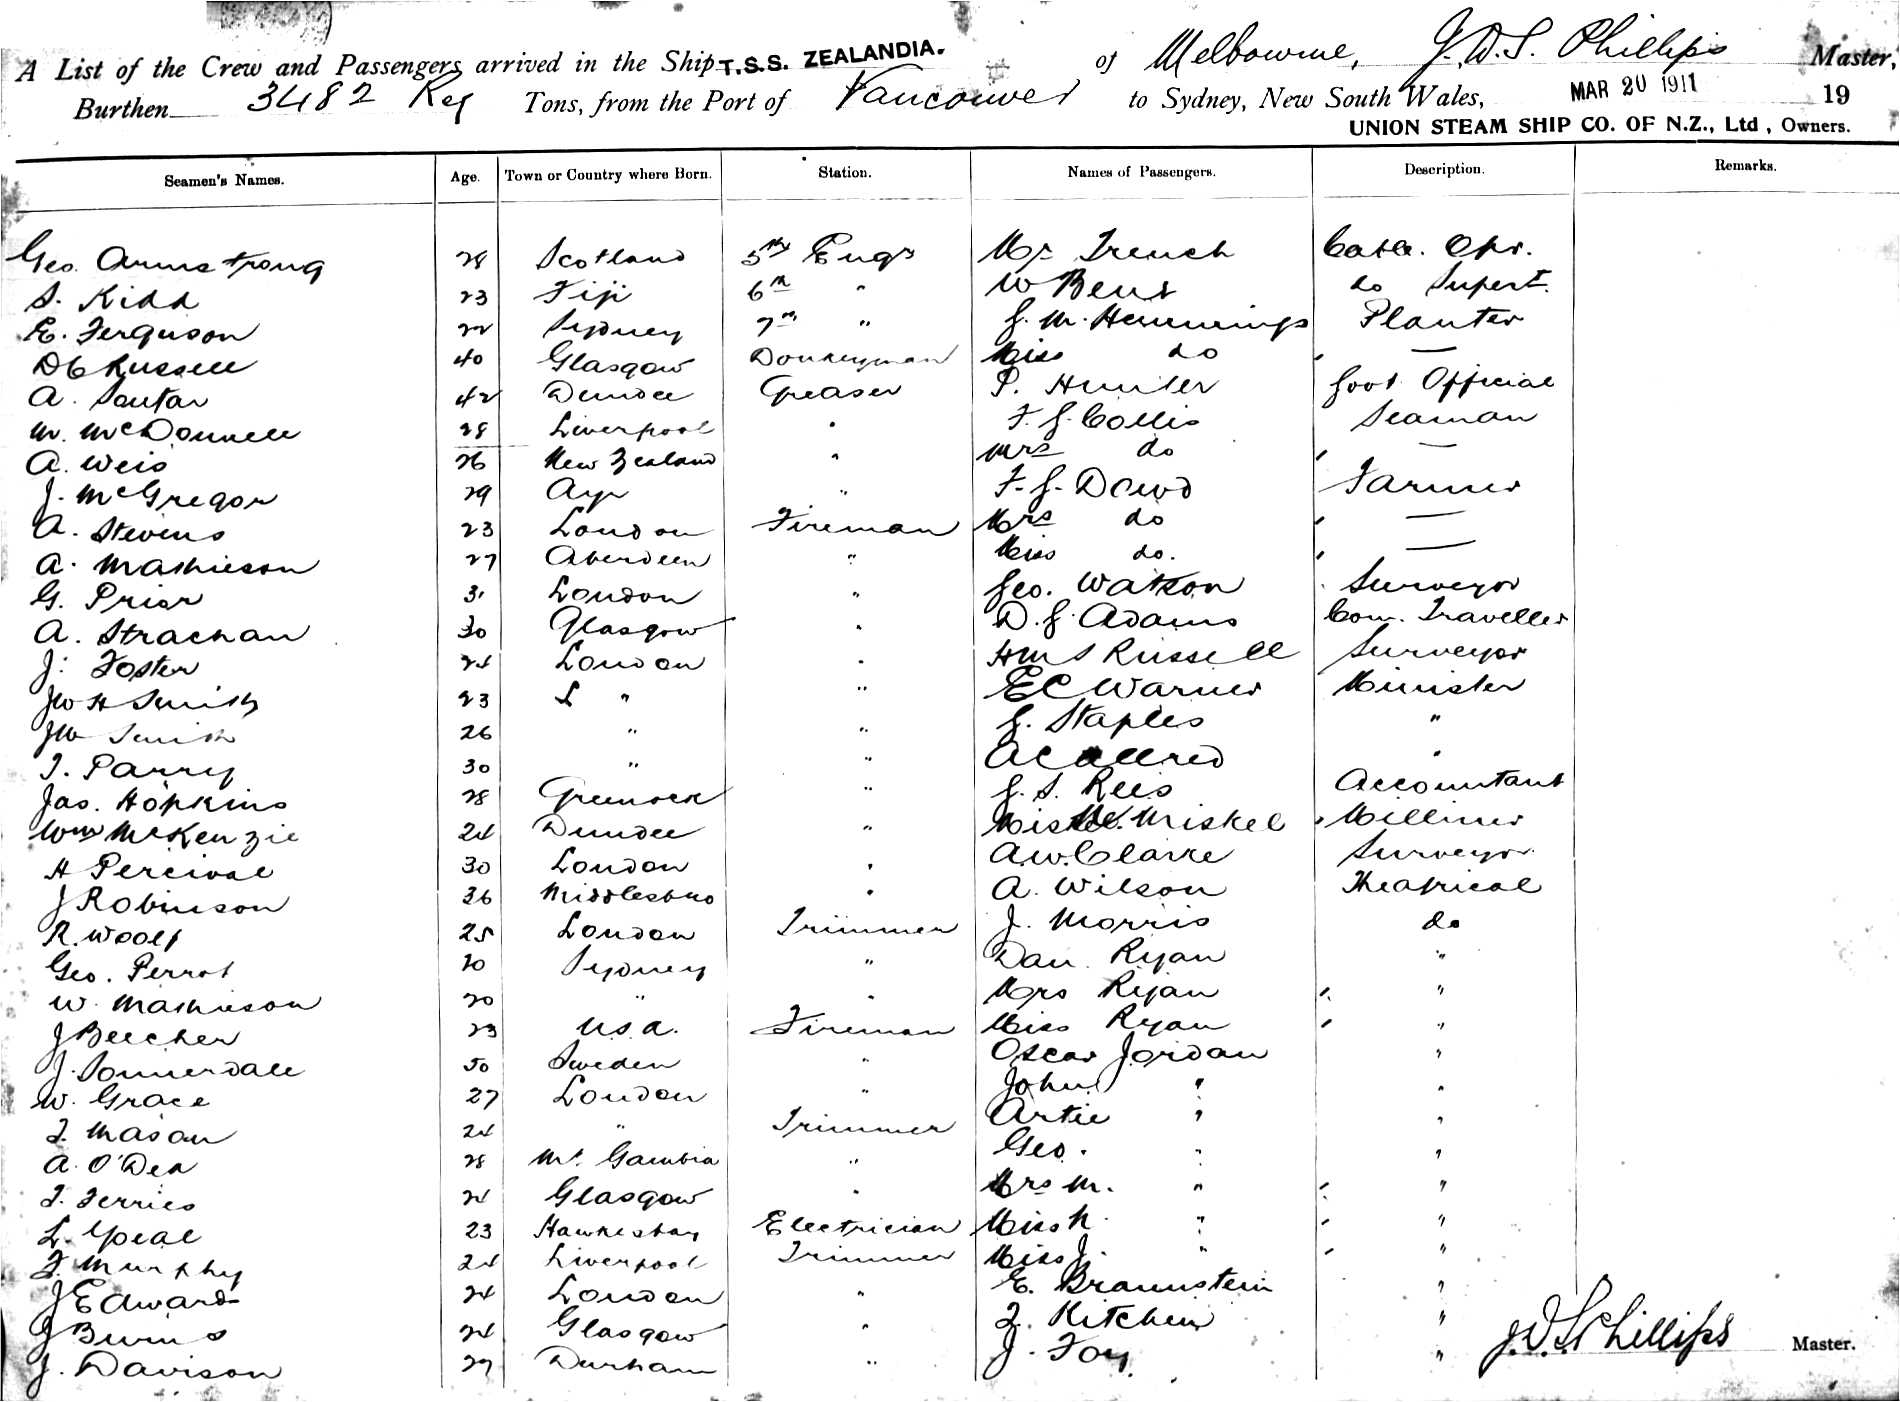 A List of the Crew and Passengers arrived in the Ship T.S.S. ZEALANDIA. of Melbourne, J.D.S. Phillips Master,
Burthen 3482 Reg Tons, from the Port of Vancouver to Sydney, New South Wales, MAR 20 1911 19
UNION STEAM SHIP CO. OF N.Z., Ltd, Owners.
Seamen's Names. Age. Town or Country where Born. Station. Names of Passengers. Description. Remarks.
Geo. Armstrong 28 Scotland 5th Engr Mr Trench Cable. Opr.
S. Kidd 23 Fiji 6th " W Bent do Supert.
E. Ferguson 22 Sydney 7th " J. M. Hennings Planter
D C Russell 40 Glasgow Donkeyman Miss do —
A. Soutar 42 Dundee Greaser P. Hunter Govt Official
M. McDonnell 28 Liverpool " F. J. Collis Seaman
A. Weis 26 New Zealand " Mrs do —
J. McGregor 29 Ayr " F. J. Dowd Farmer
A. Stevens 23 London Fireman Mrs do —
A. Mathieson 27 Aberdeen " Miss do. —
G. Prior 31 London " Geo. Watson Surveyor
A. Strachan 30 Glasgow " D. J. Adams Com. Traveller
J. Foster 24 London " H M S Russell Surveyor
J W H Smith 23 L " " E C Warner Minister
J W Smith 26 " " J. Staples "
T. Parry 30 " " A C Allred "
Jas. Hopkins 28 Greenock " J. S. Rees Accountant
Wm McKenzie 24 Dundee " Miss M. Miskel Milliner
H Percival 30 London " A. W. Clarke Surveyor
J Robinson 36 Middlesbro " A. Wilson Theatrical
R. Woolf 25 London Trimmer J. Morris do
Geo. Perrot 20 Sydney " Dan Ryan "
W. Mathieson 20 " " Mrs Ryan "
J Beecher 23 U.S.A. Fireman Miss Ryan "
J. Sonnerdale 50 Sweden " Oscar Jordan "
W. Grace 27 London " John " "
T. Mason 24 " Trimmer Artie " "
A. O'Dea 28 Mt. Gambia " Geo. " "
T. Ferries 24 Glasgow " Mrs M. " "
L. Yoeal 23 Hawkesbay Electrician Miss K. " "
F. Murphy 24 Liverpool Trimmer Miss J. " "
J Edwards 24 London " E. Braunstein "
J Burns 24 Glasgow " T. Kitchen "
J. Davison 27 Durham " J. Foy. " J.D.S. Phillips Master.